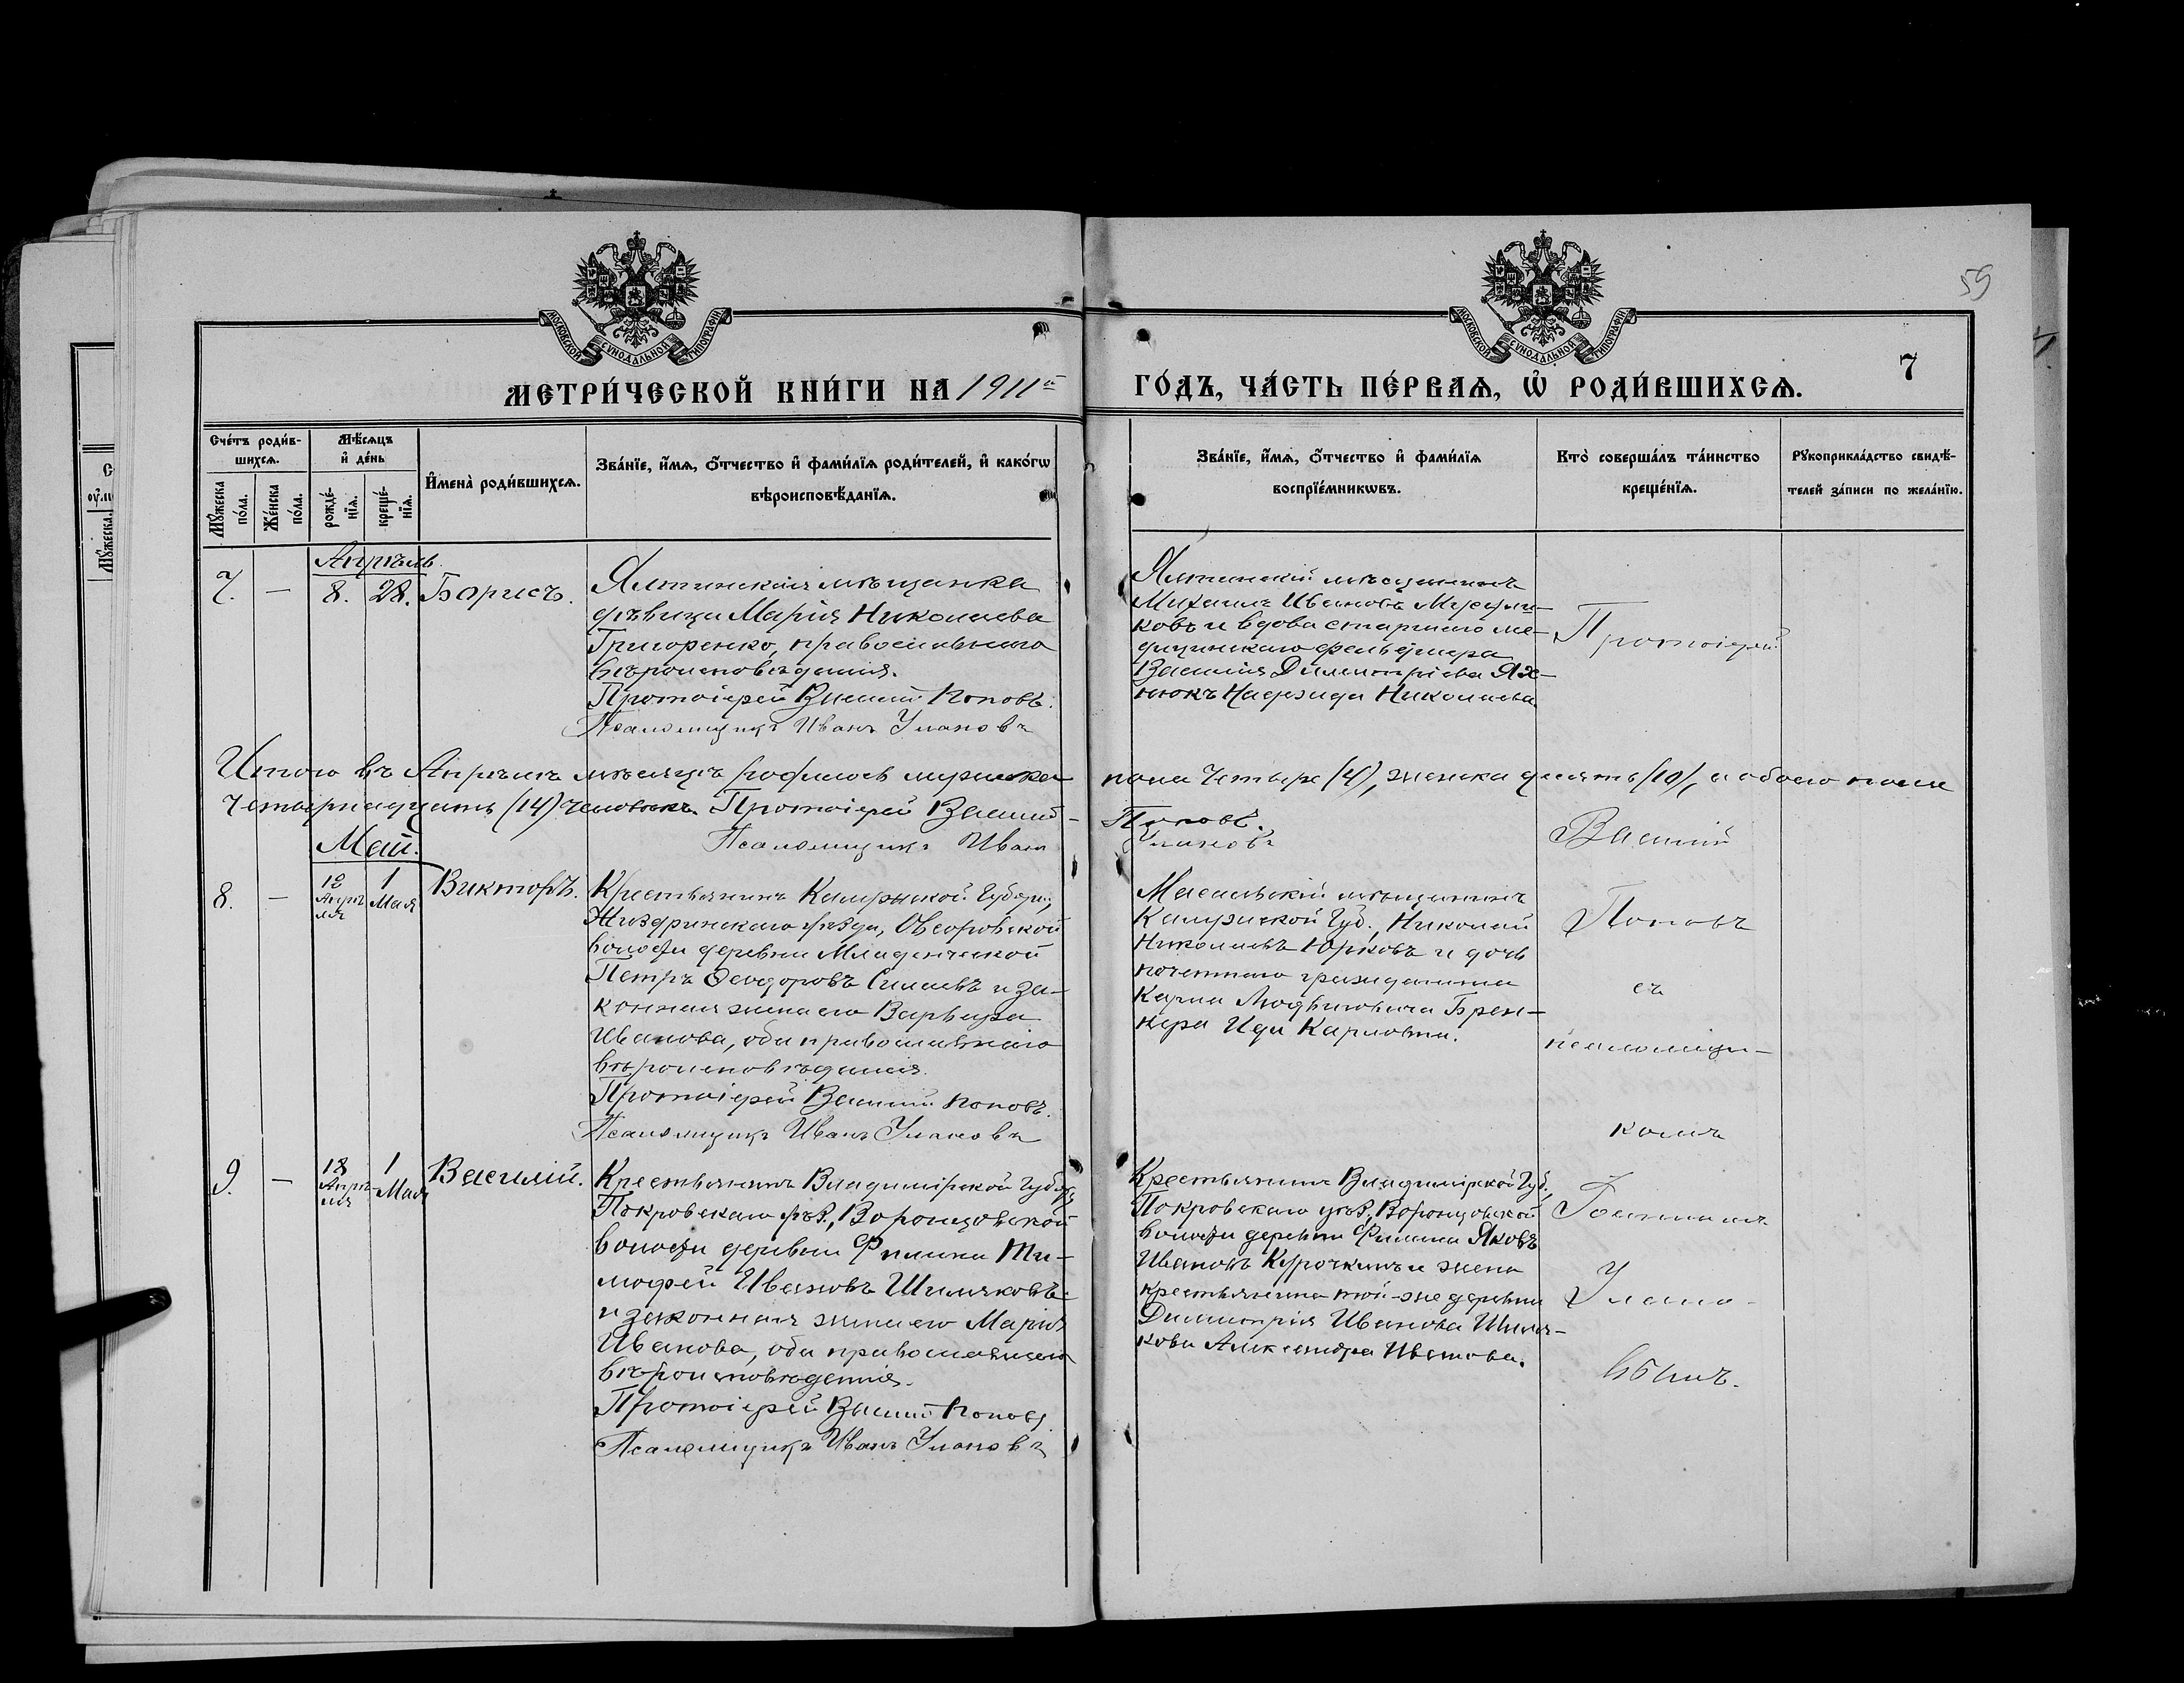 59
МОСКОВСКОЙ СѴНОДАЛЬНОЙ ТИПОГРАФІИ
МОСКОВСКОЙ СѴНОДАЛЬНОЙ ТИПОГРАФІИ
7
МЕТРИ́ЧЕСКОЙ КНИ́ГИ НА 1911й
ГО́ДЪ, ЧА́СТЬ ПЕ́РВАѦ, Ѡ҆ РОДИ́ВШИХСѦ.
Сче́тъ роди́в-
шихсѧ.
Мꙋ́жеска
по́ла.
Же́нска
по́ла.
Мѣ́сѧцъ
и҆ де́нь
рожде́-
нїѧ.
креще́-
нїѧ.
И҆мена̀ роди́вшихсѧ.
Зва́нїе, и҆́мѧ, ѻ҆́тчество и҆ фами́лїѧ роди́телей, и҆ како́гѡ
вѣроисповѣ́данїѧ.
Зва́нїе, и҆́мѧ, ѻ҆́тчество и҆ фами́лїѧ
воспрїе́мникѡвъ.
Кто̀ соверша́лъ та́инство
креще́нїѧ.
Рꙋкоприкла́дство свидѣ́-
телей за́писи по жела́нїю.
Апрѣль
7. — 8. 28. Борисъ.
Ялтинская мѣщанка
дѣвица Марія Николаева
Григоренко, православнаго
вѣроисповѣданія.
Протоіерей Василій Поповъ.
Псаломщикъ Иванъ Улановъ
Ялтинскій мѣщанинъ
Михаилъ Ивановъ
ковъ и вдова старшаго ме-
дицинскаго фельдшера
Василія Димитріева Ях-
нюкъ Надежда Николаева
Протоіерей
Итого въ Апрѣлѣ мѣсяцѣ родилось мужеска пола четыре (4), женска десять (10), а обоего пола
четырнадцать (14) человѣкъ. Протоіерей Василій Поповъ.
Псаломщикъ Иванъ Улановъ
Василій
Май.
8. — 12 Апрѣ-
ля 1 Мая Викторъ.
Крестьянинъ Калужской Губерн.,
Жиздринскаго уѣзда, Овсоровской
волости деревни Младенческой
Петръ Ѳеодоровъ Силаевъ и за-
конная жена его Варвара
Иванова, оба православнаго
вѣроисповѣданія.
Протоіерей Василій Поповъ.
Псаломщикъ Иванъ Улановъ
Масальскій мѣщанинъ
Калужской Губ., Николай
Николаевъ Юрковъ и дочь
почетнаго гражданина
Карла Людвиговича Брен-
нера Ида Карловна.
Поповъ
съ
псаломщи-
комъ
9. — 18 Апрѣ-
ля 1 Мая Василій.
Крестьянинъ Владимірской Губер.,
Покровскаго уѣз., Воронцовской
волости деревни Филина Ти-
мофей Ивановъ Шиляковъ
и законная жена его Марія
Иванова, оба православнаго
вѣроисповѣданія.
Протоіерей Василій Поповъ
Псаломщикъ Иванъ Улановъ
Крестьянинъ Владимірской Губ.,
Покровскаго уѣз., Воронцовской
волости деревни Филина Яковъ
Ивановъ Курочкинъ и жена
крестьянина той-же деревни
Димитрія Иванова Шиля-
кова Александра Иванова.
Іоанномъ
Улано-
вымъ.